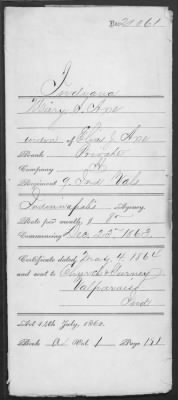 No 21061
Indiana
Mary S. Ape
widow of Elias J. Ape
Rank Private
Company A
Regiment 9 Ind Vols
Indianapolis Agency.
Rate per month, $ 8
Commencing Dec. 22d 1863
Certificate dated May 4 1864
and sent to
Valparaiso
Ind
Act 14th July, 1862.
Book A Vol 1 Page 121